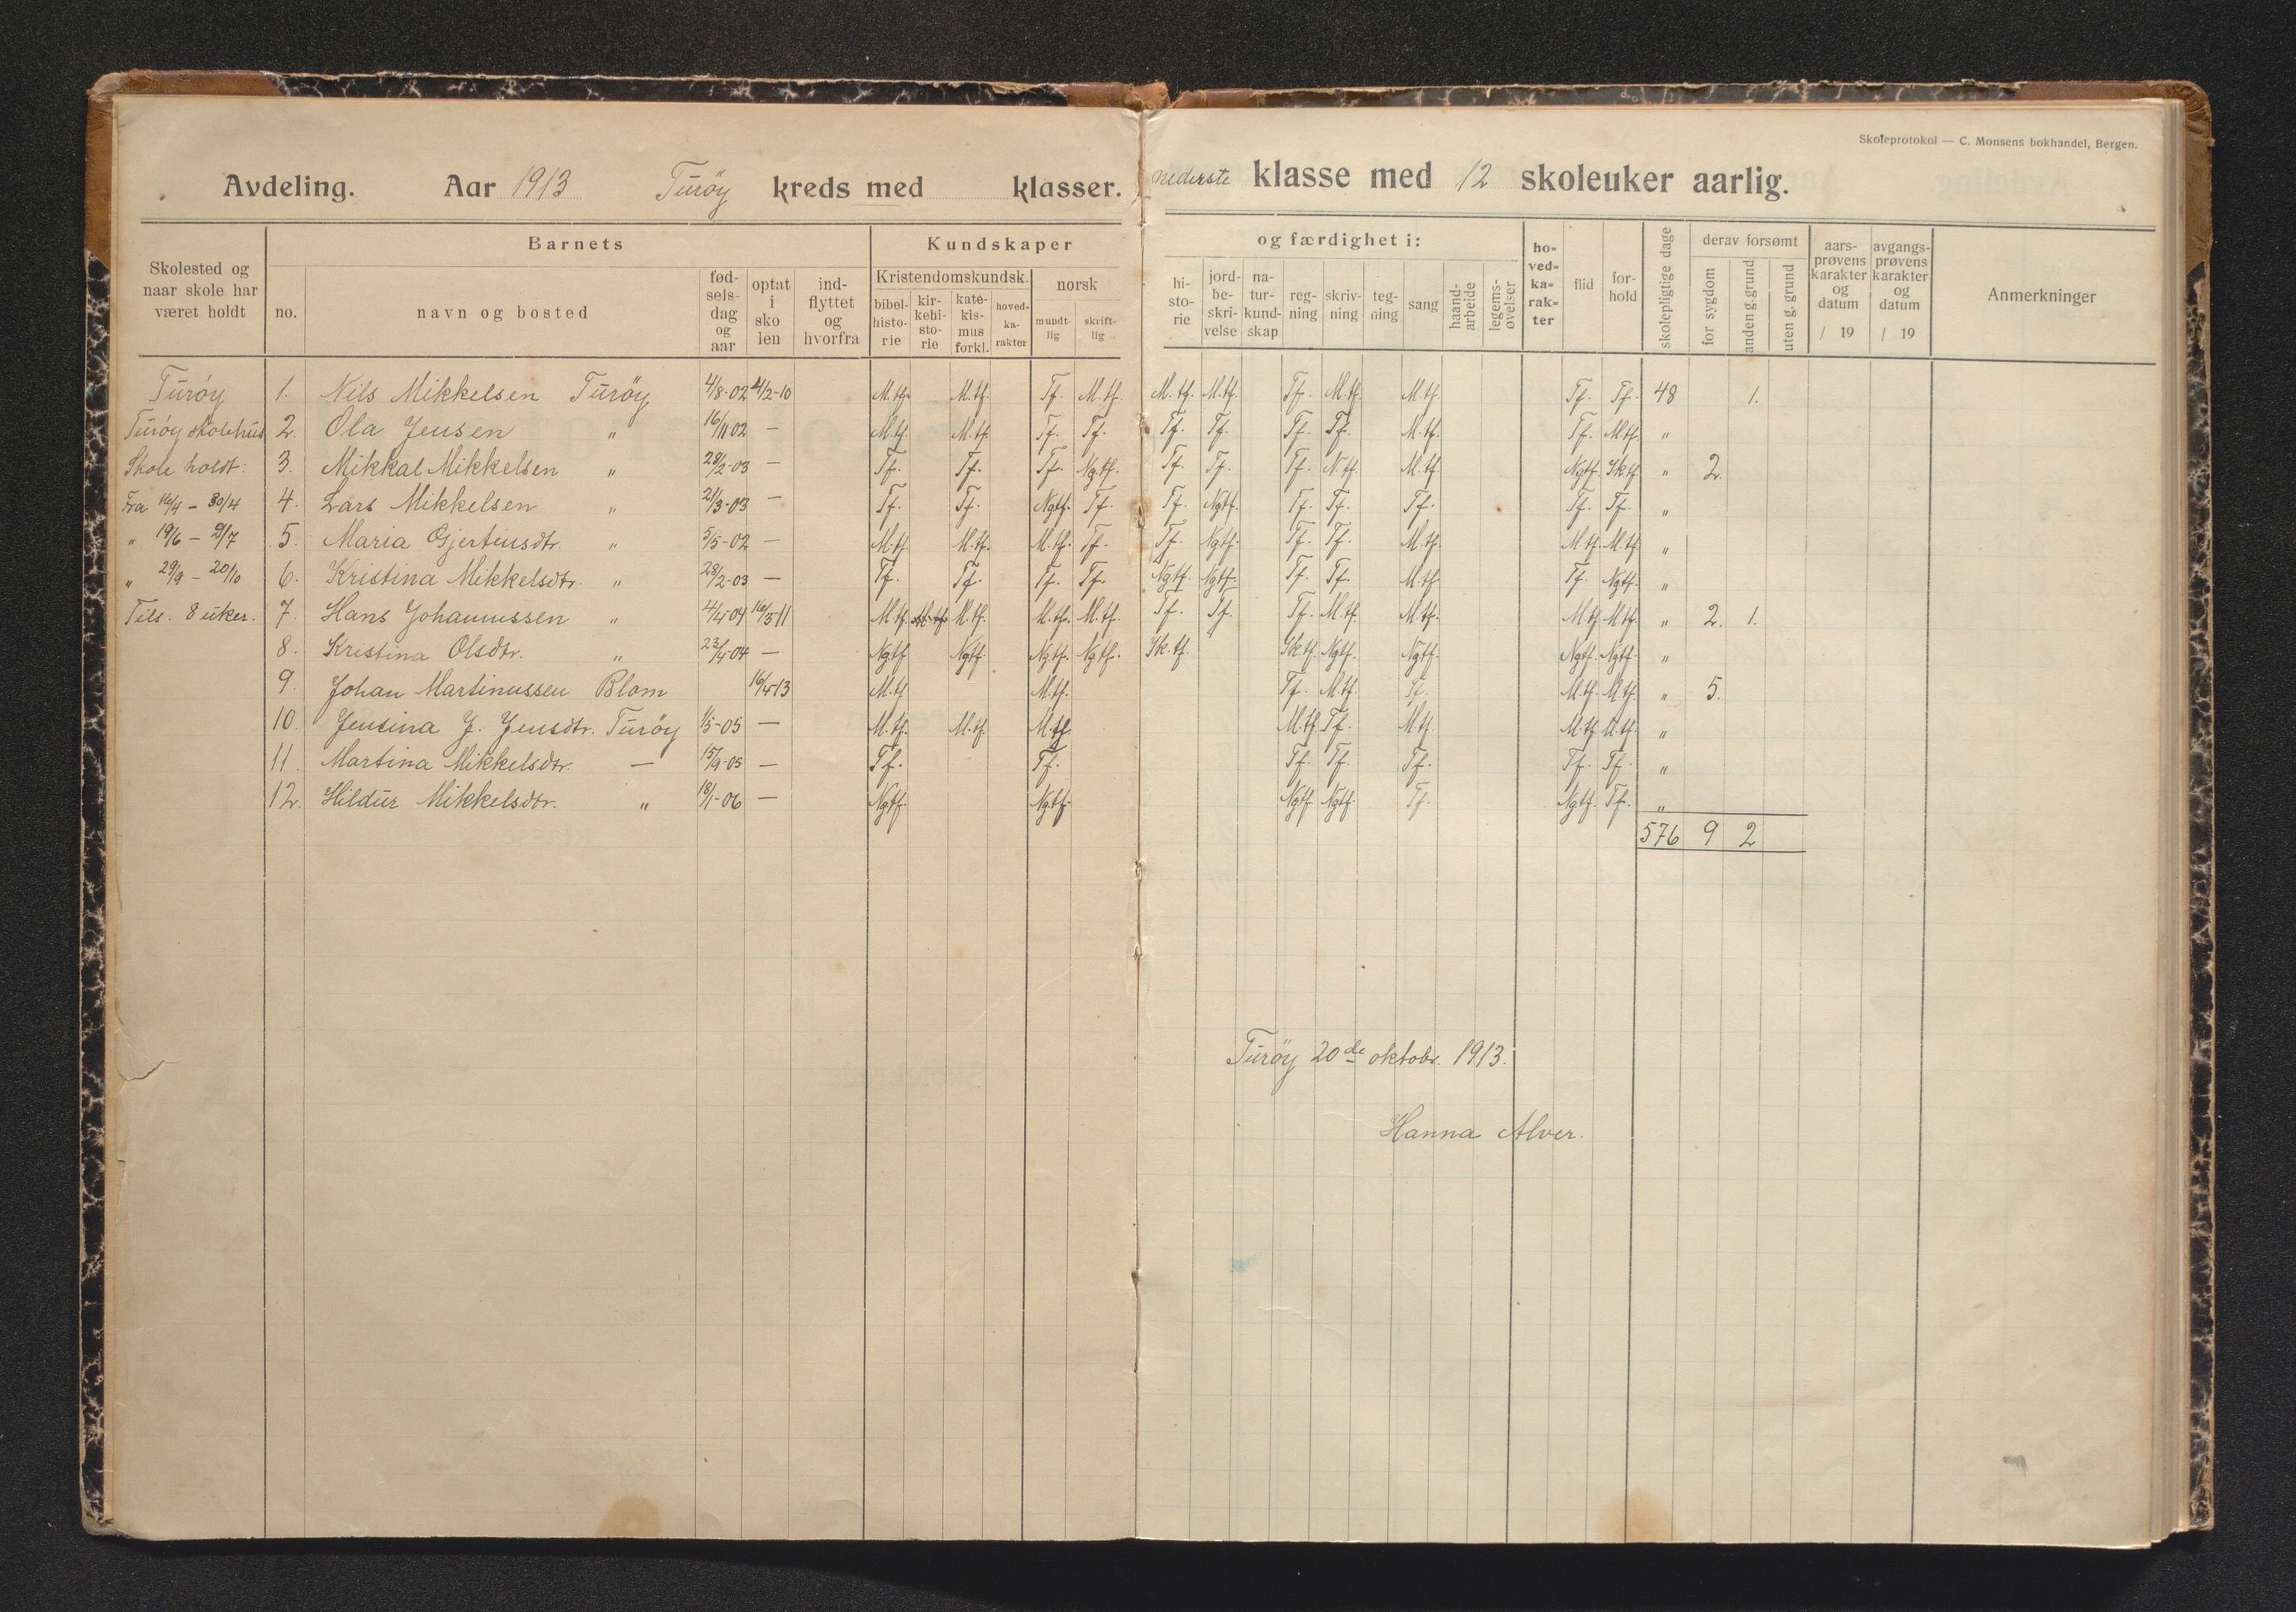 Skoleprotokol — C. Monsens bokhandel, Bergen.
Avdeling. Aar 1913 Turöy kreds med klasser. nederste klasse med 12 skoleuker aarlig.
Skolested og naar skole har været holdt
Barnets
no. navn og bosted fødselsdag og aar optat i skolen indflyttet og hvorfra
Kundskaper og færdighet i:
Kristendomskundsk. norsk
bibelhistorie kirkehistorie katekismus forkl. hovedkarakter mundtlig skriftlig
historie jordbeskrivelse naturkundskap regning skrivning tegning sang haandarbeide legemsøvelser
hovedkarakter flid forhold skolepligtige dage
derav forsømt
for sygdom anden g. grund uten g. grund
aarsprøvens karakter og datum / 19
avgangsprøvens karakter og datum / 19
Anmerkninger
Turöy 1. Nils Mikkelsen Turöy 4/8-02 4/2-10 M.tf. M.tf. Tf. M.tf. M.tf. M.tf. Tf. M.tf. M.tf. Tf. Tf. 48 1.
Turöy skolehus 2. Ola Jensen " 16/11 02 — M.tf. M.tf. Tf. Tf. Tf. Tf. Tf. Tf. M.tf. Tf. M.tf. "
Skole holdt: 3. Mikkal Mikkelsen " 28/2-03 — Tf. Tf. Tf. Ngtf. Tf. Tf. Tf. M.tf. Ngtf. Sk.tf. " 2.
Fra 16/4 – 30/4 4. Lars Mikkelsen " 21/3-03 — Tf. Tf. Ngtf. Tf. Tf. Ngtf. Tf. Tf. Tf. Tf. Tf. "
" 19/6 – 9/7 5. Maria Gjertinsdtr. " 5/5-02 — M.tf. M.tf. M.tf. Tf. Tf. Ngtf. Tf. Tf. M.tf. M.tf. M.tf. "
" 29/9 – 20/10 6. Kristina Mikkelsdtr. " 28/2-03 — Tf. Tf. Tf. Tf. Ngtf. Ngtf. Tf. Tf. M.tf. Tf. Ngtf. "
Tils. 8 uker. 7. Hans Johannussen " 4/4-04 16/3-11 M.tf. M.tf. M.tf. M.tf. Tf. Tf. Tf. M.tf. M.tf. M.tf. M.tf. " 2. 1.
8. Kristina Olsdtr. " 23/4-04 — Ngtf. Ngtf. Ngtf. Ngtf. Sk.tf. Sk.tf. Ngtf. Ngtf. Ngtf. Ngtf. "
9. Johan Martinussen Blom 16/4-13 M.tf. M.tf. Tf. M.tf. Tf. M.tf. M.tf. " 5.
10. Jensina J. Jensdtr. Turöy 1/5-05 — M.tf. M.tf. M.tf. M.tf. Tf. M.tf. M.tf. M.tf. "
11. Martina Mikkelsdtr. — 15/9-05 — Tf. Tf. Tf. Tf. Tf. Tf. Tf. "
12. Hildur Mikkelsdtr. " 18/1-06 — Ngtf. Ngtf. Ngtf. Ngtf. Tf. Ngtf. Tf. "
576 9 2
Turöy 20de oktobr. 1913.
Hanna Alver.